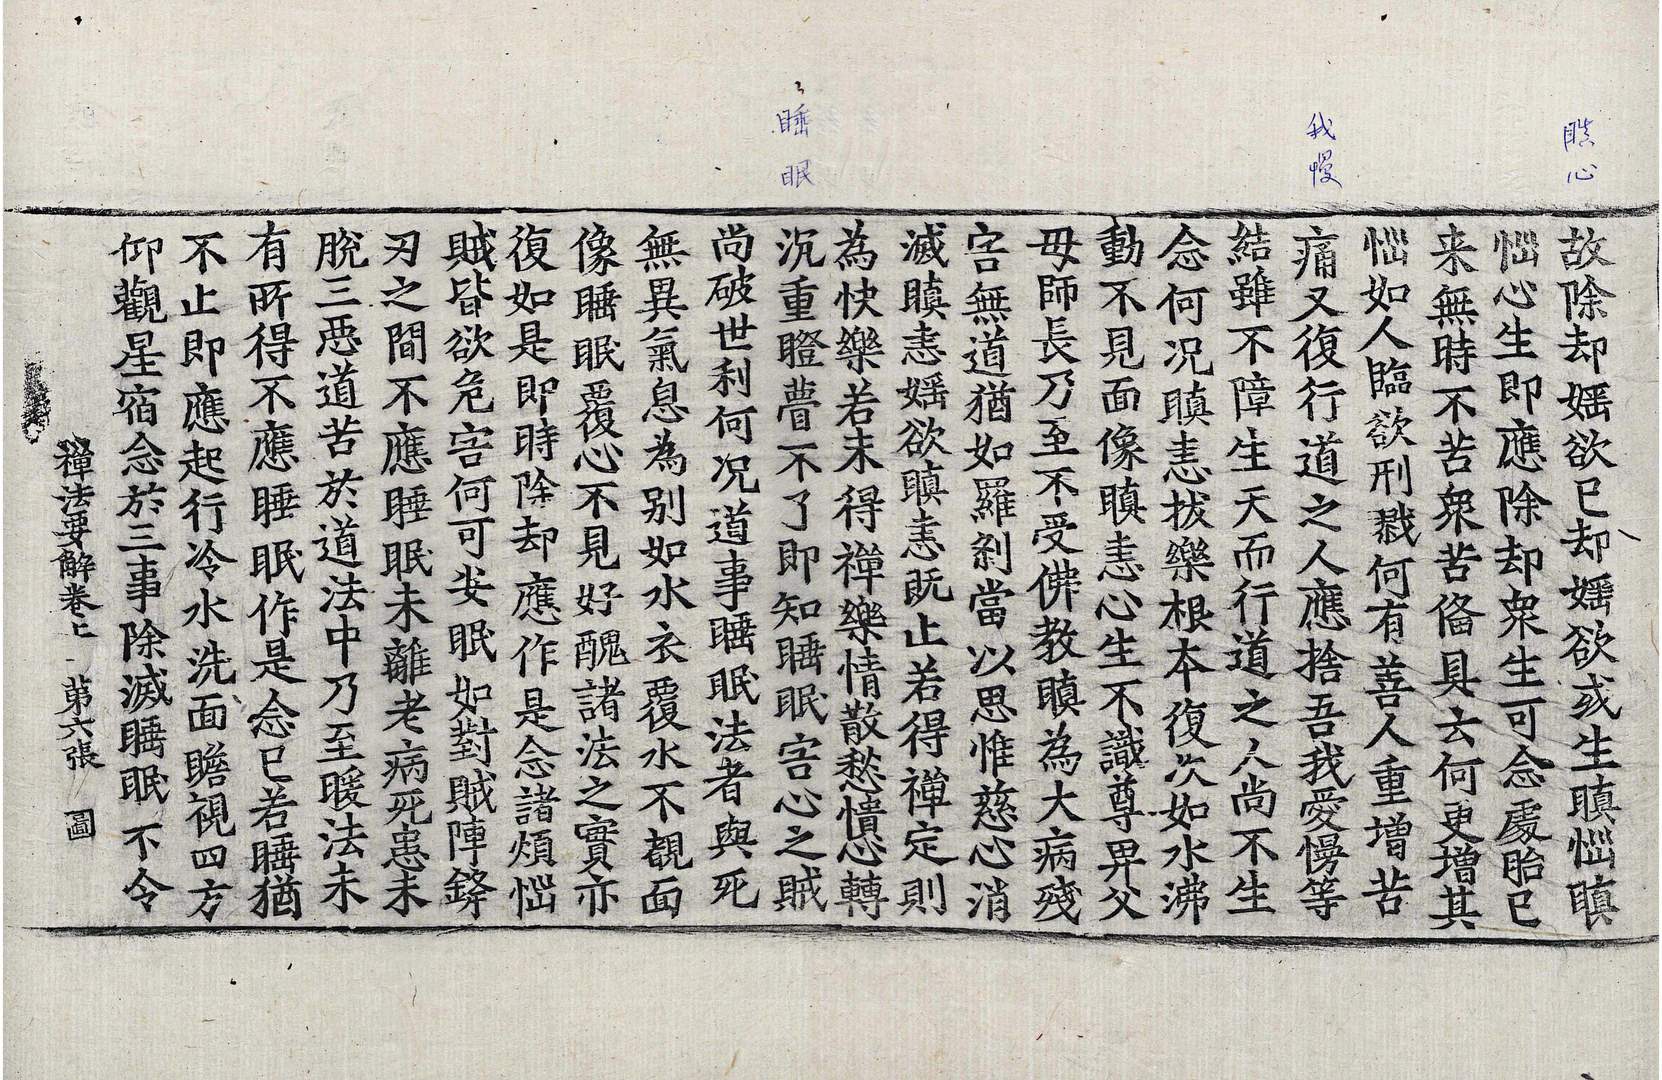 瞋心
我慢
睡眠
故除却婬欲已却婬欲或生瞋惱瞋
惱心生即應除却衆生可念處胎已
来無時不苦衆苦俻具云何更增其
惱如人臨欲刑戮何有善人重增苦
痛又復行道之人應捨吾我愛慢等
結雖不障生天而行道之人尚不生
念何况瞋恚拔樂根本復次如水沸
動不見面像瞋恚心生不識尊畀父
母師長乃至不受佛教瞋為大病殘
害無道猶如羅剎當以思惟慈心消
滅瞋恚婬欲瞋恚既止若得禪定則
為快樂若未得禪樂情散愁憒心轉
沉重瞪瞢不了即知睡眠害心之賊
尚破世利何况道事睡眠法者與死
無異氣息為别如水衣覆水不覩面
像睡眠覆心不見好醜諸法之實亦
復如是即時除却應作是念諸煩惱
賊皆欲危害何可安眠如對賊陣鋒
刃之間不應睡眠未離老病死患未
脫三惡道苦於道法中乃至暖法未
有所得不應睡眠作是念已若睡猶
不止即應起行冷水洗面瞻視四方
仰觀星宿念於三事除滅睡眠不令
禪法要解卷上 第六張 圖